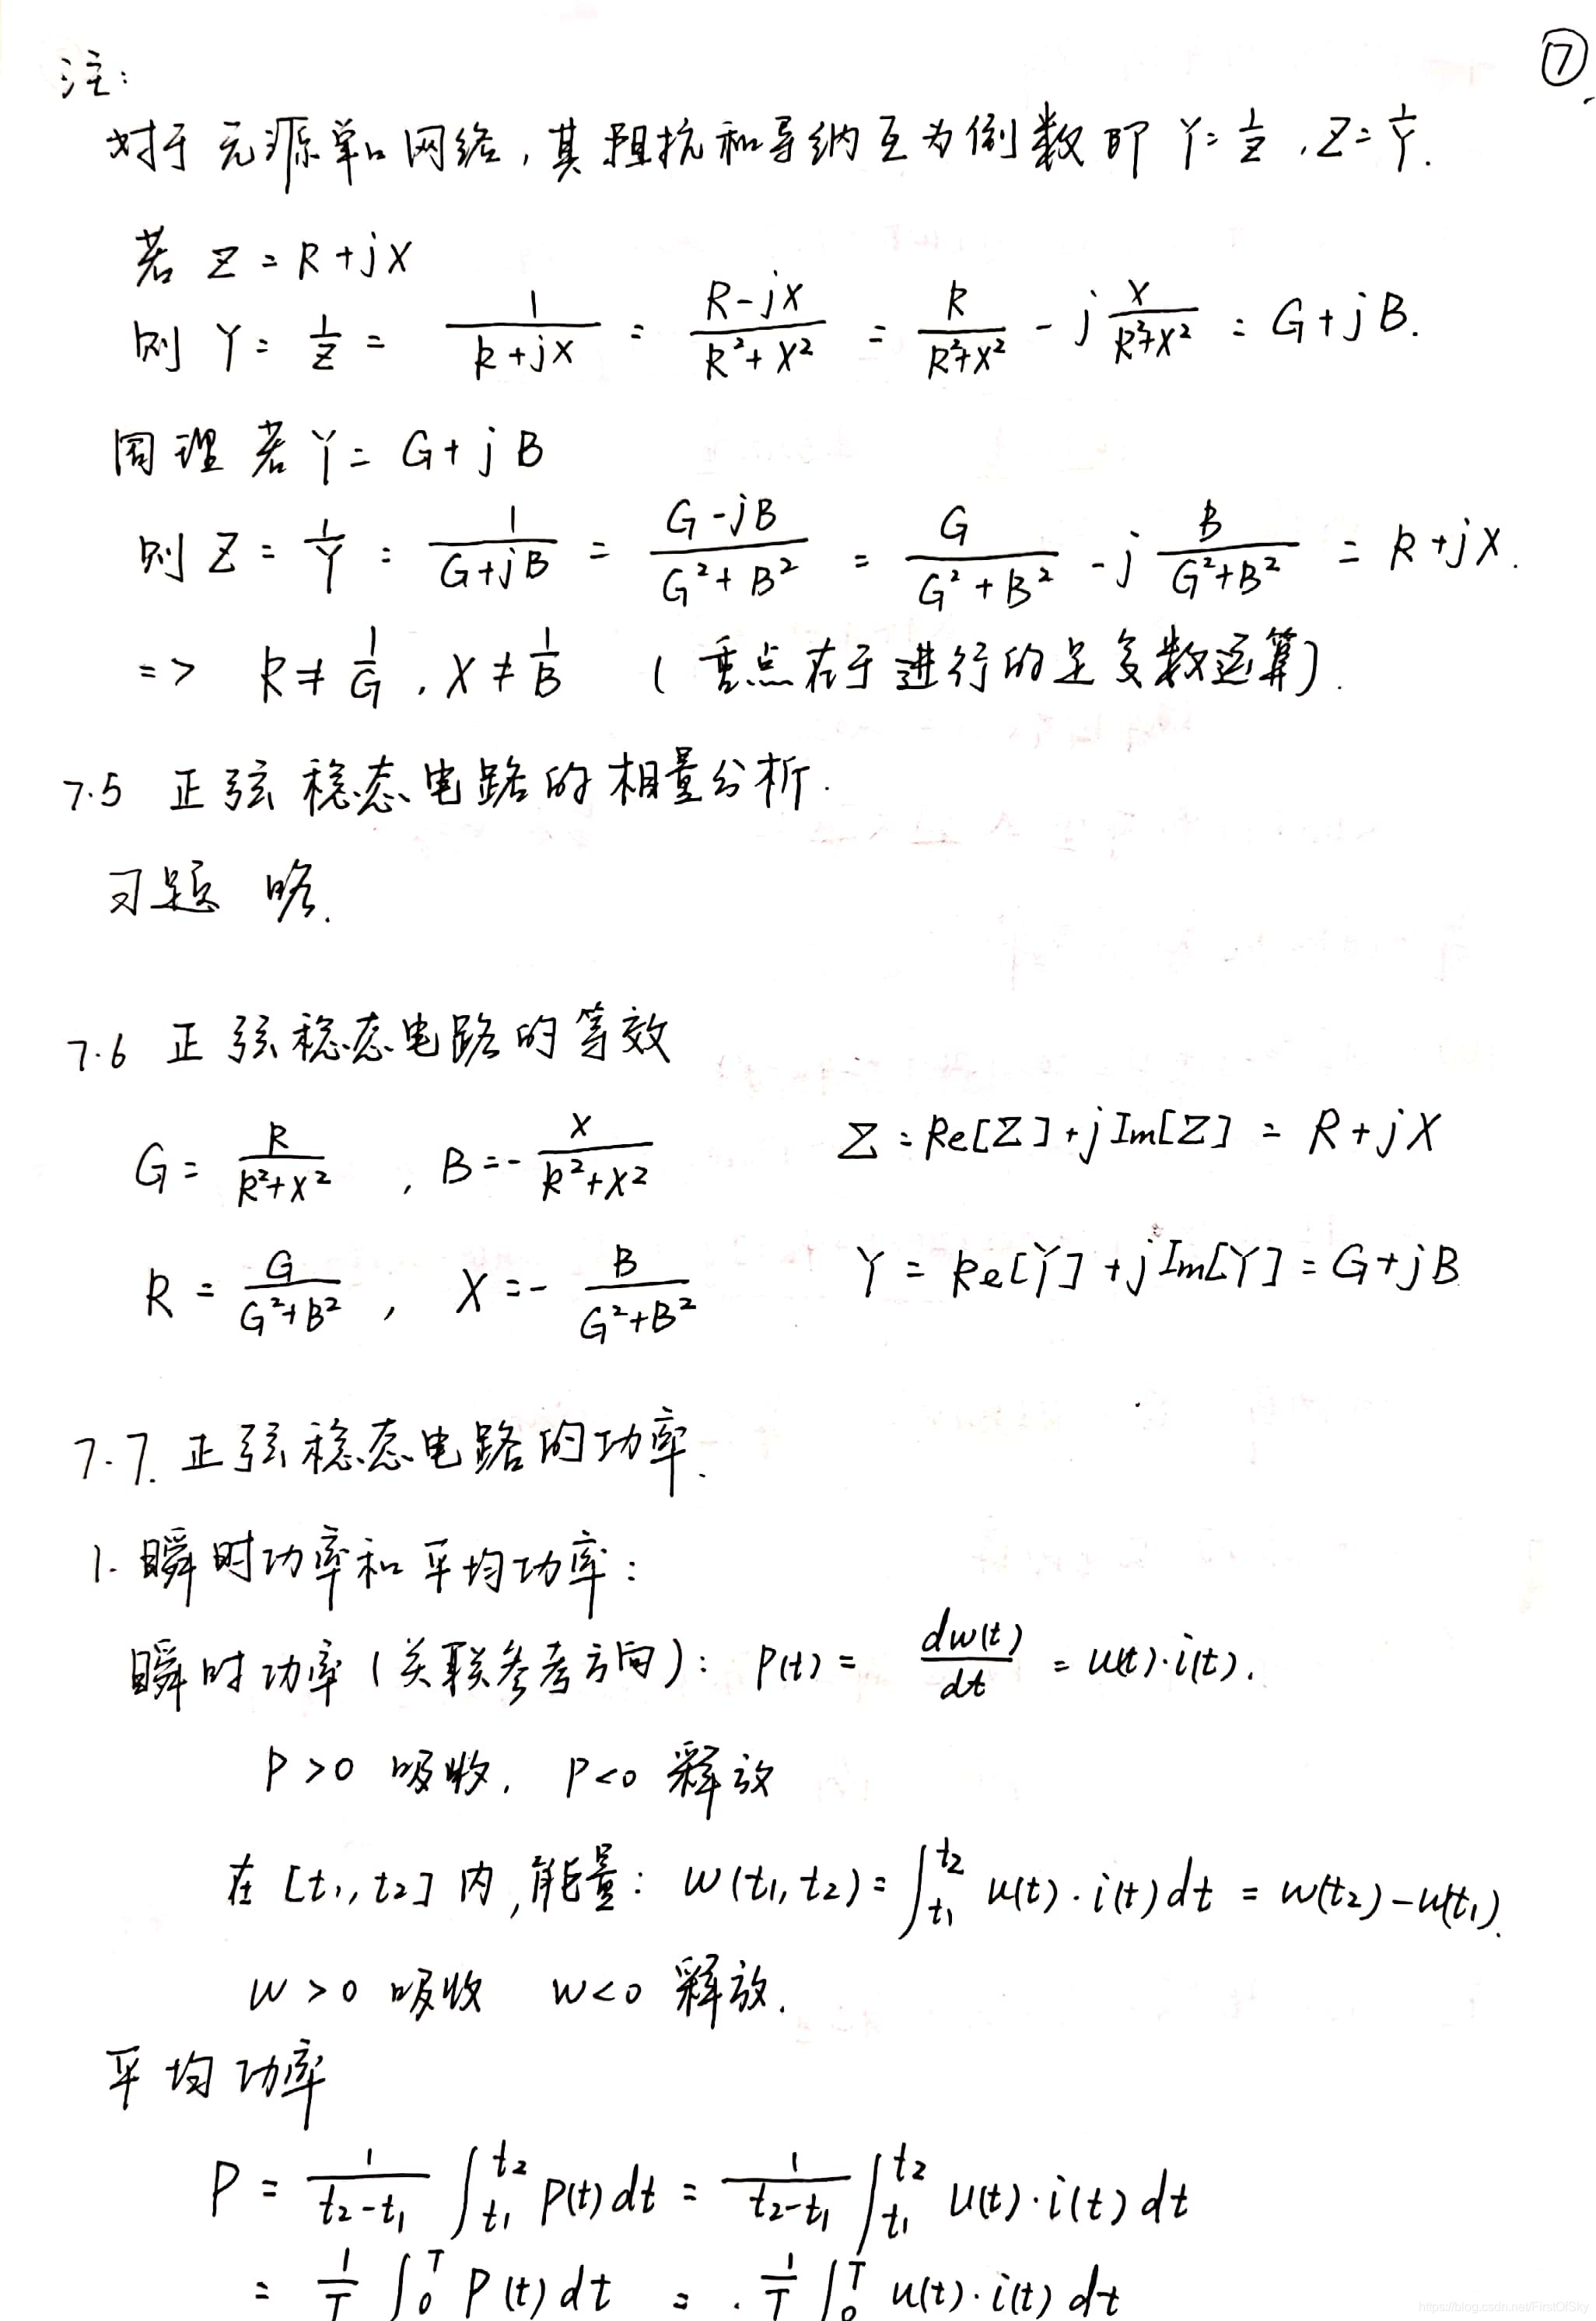 ⑦
注:
对于无源单口网络,其阻抗和导纳互为倒数即 Y=1/Z , Z=1/Y.
若 Z = R+jX
则 Y = 1/Z = 1/(R+jX) = (R-jX)/(R²+X²) = R/(R²+X²) - j X/(R²+X²) = G+jB.
同理若 Y = G+jB
则 Z = 1/Y = 1/(G+jB) = (G-jB)/(G²+B²) = G/(G²+B²) - j B/(G²+B²) = R+jX.
=> R ≠ 1/G , X ≠ 1/B (重点在于进行的是复数运算).
7.5 正弦稳态电路的相量分析.
习题 略.
7.6 正弦稳态电路的等效
G = R/(R²+X²) , B = - X/(R²+X²) Z = Re[Z]+jIm[Z] = R+jX
R = G/(G²+B²) , X = - B/(G²+B²) Y = Re[Y]+jIm[Y] = G+jB
7.7. 正弦稳态电路的功率.
1. 瞬时功率和平均功率:
瞬时功率(关联参考方向): P(t) = dw(t)/dt = u(t)·i(t).
P>0 吸收. P<0 释放
在 [t₁,t₂] 内,能量: w(t₁,t₂) = ∫_{t₁}^{t₂} u(t)·i(t)dt = w(t₂)-w(t₁).
w>0 吸收 w<0 释放.
平均功率
P = 1/(t₂-t₁) ∫_{t₁}^{t₂} P(t)dt = 1/(t₂-t₁) ∫_{t₁}^{t₂} u(t)·i(t)dt
= 1/T ∫₀^T P(t)dt = 1/T ∫₀^T u(t)·i(t)dt
https://blog.csdn.net/FirstOfSky